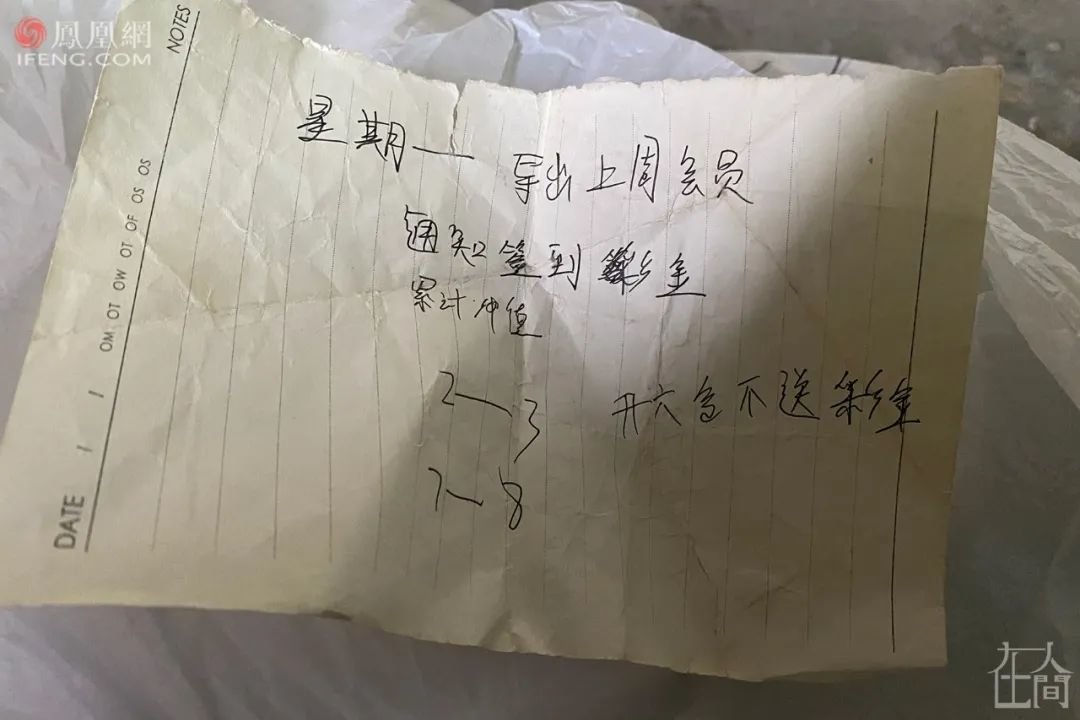 鳳凰網
IFENG.COM
NOTES
MO OT OW OT OF OS OS
DATE / /
星期一 导出上周会员
通知签到彩金
累计冲值
2—3 开六合不送彩金
7—8
在人間